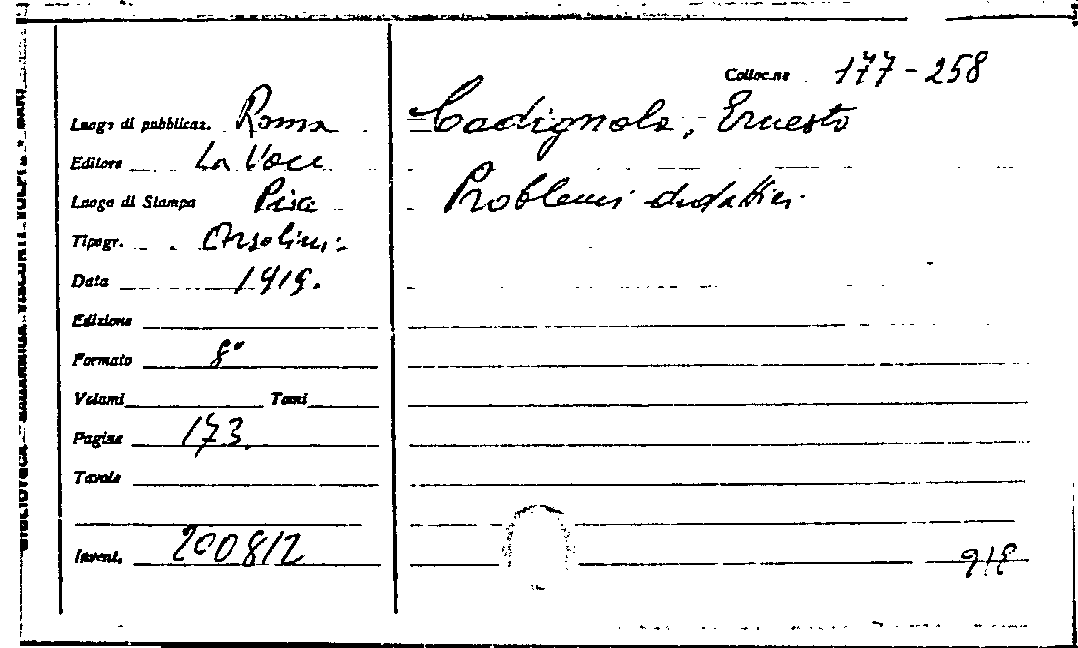 Colloc.ne 177-258
Luogo di pubblicaz. Roma
Codignola, Ernesto
Editore La Voce
Luogo di Stampa Pisa
Problemi didattici.
Tipogr. Orsolini
Data 1919.
Edizione
Formato 8°
Volumi Tomi
Pagine 173.
Tavole
Invent. 200812
918
BIBLIOTECA SAGARRIGA VISCONTI VOLPI - BARI